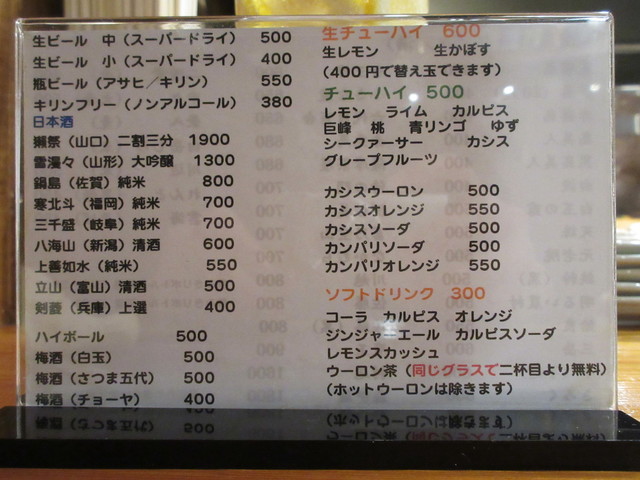 生ビール 中（スーパードライ） 500
生ビール 小（スーパードライ） 400
瓶ビール（アサヒ／キリン） 550
キリンフリー（ノンアルコール） 380
日本酒
獺祭（山口）二割三分 1900
雪漫々（山形）大吟醸 1300
鍋島（佐賀）純米 800
寒北斗（福岡）純米 700
三千盛（岐阜）純米 700
八海山（新潟）清酒 600
上善如水（純米） 550
立山（富山）清酒 500
剣菱（兵庫）上選 400
ハイボール 500
梅酒（白玉） 500
梅酒（さつま五代） 500
梅酒（チョーヤ） 400
生チューハイ 600
生レモン 生かぼす
（400円で替え玉できます）
チューハイ 500
レモン ライム カルピス
巨峰 桃 青リンゴ ゆず
シークァーサー カシス
グレープフルーツ
カシスウーロン 500
カシスオレンジ 550
カシスソーダ 500
カンパリソーダ 500
カンパリオレンジ 550
ソフトドリンク 300
コーラ カルピス オレンジ
ジンジャーエール カルピスソーダ
レモンスカッシュ
ウーロン茶（同じグラスで二杯目より無料）
（ホットウーロンは除きます）